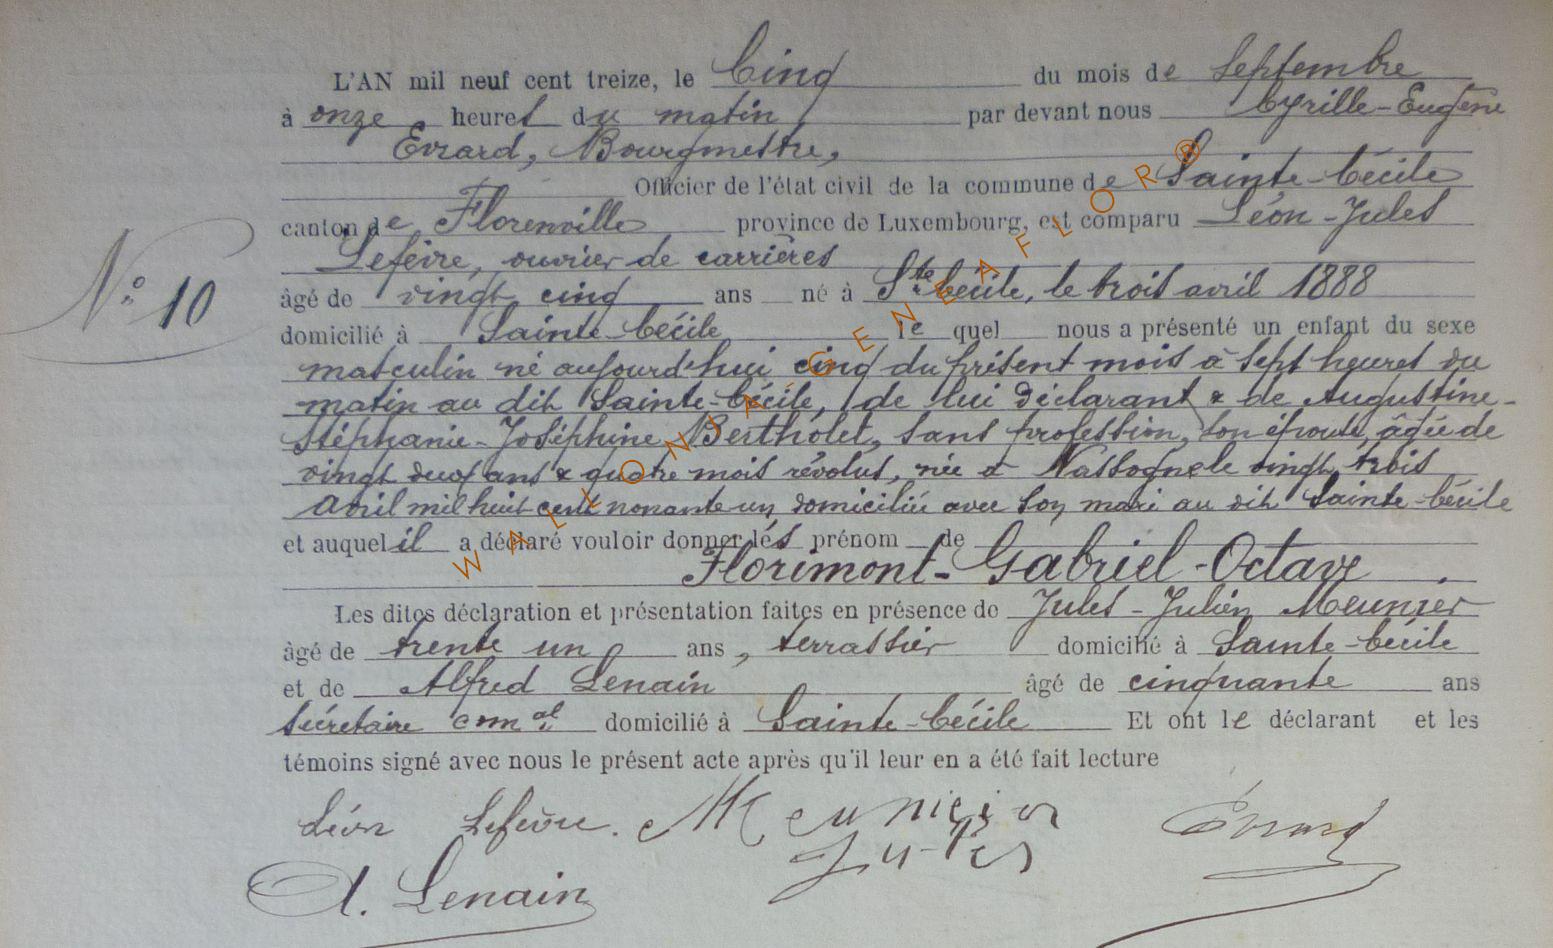 L'AN mil neuf cent treize, le Cinq du mois de Septembre
à onze heures du matin par devant nous Cyrille-Eugène
Evrard, Bourgmestre,
Officier de l'état civil de la commune de Sainte-Cécile
canton de Florenville province de Luxembourg, est comparu Léon-Jules
Lefèvre, ouvrier de carrières
N° 10
âgé de vingt cinq ans né à Ste Cécile, le trois avril 1888
domicilié à Sainte-Cécile le quel nous a présenté un enfant du sexe
masculin né aujourd'hui cinq du présent mois à sept heures du
matin au dit Sainte-Cécile, de lui déclarant & de Augustine-
Stéphanie-Joséphine Bertholet, sans profession, son épouse, âgée de
vingt deux ans & quatre mois révolus, née à Nassogne le vingt trois
avril mil huit cent nonante un domiciliée avec son mari au dit Sainte-Cécile
et auquel il a déclaré vouloir donner les prénom de
Florimont-Gabriel-Octave.
Les dites déclaration et présentation faites en présence de Jules-Julien Meunier
âgé de trente un ans, terrassier domicilié à Sainte-Cécile
et de Alfred Lenain âgé de cinquante ans
Sécretaire commal domicilié à Sainte-Cécile Et ont le déclarant et les
témoins signé avec nous le présent acte après qu'il leur en a été fait lecture
Léon Lefèvre. Meunier Evrard
Jules
A. Lenain
WALLONIA-GENEAFLOR®